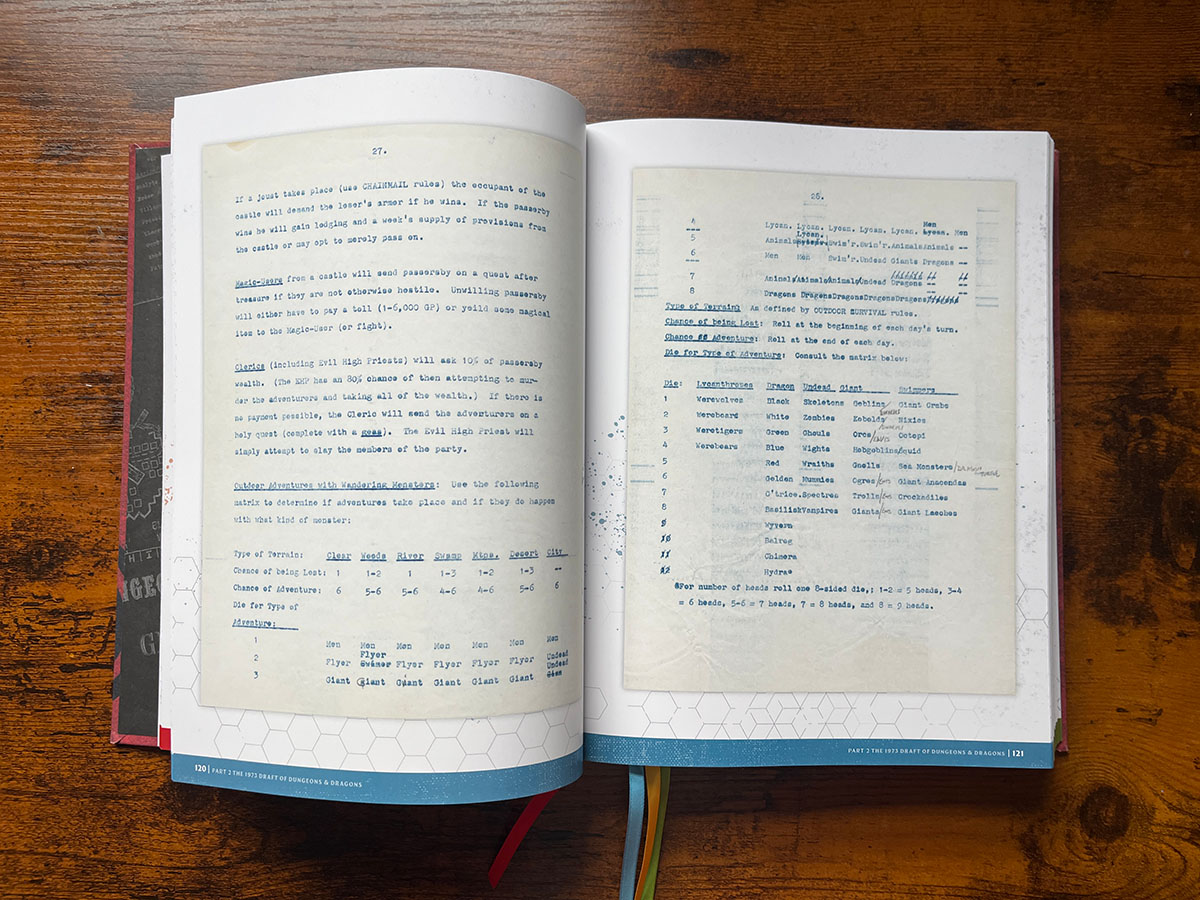 27.
If a joust takes place (use CHAINMAIL rules) the occupant of the
castle will demand the loser's armor if he wins. If the passerby
wins he will gain lodging and a week's supply of provisions from
the castle or may opt to merely pass on.
Magic-Users from a castle will send passersby on a quest after
treasure if they are not otherwise hostile. Unwilling passersby
will either have to pay a toll (1-6,000 GP) or yeild some magical
item to the Magic-User (or fight).
Clerics (including Evil High Priests) will ask 10% of passersby
wealth. (The EHP has an 80% chance of then attempting to mur-
der the adventurers and taking all of the wealth.) If there is
no payment possible, the Cleric will send the adventurers on a
holy quest (complete with a geas). The Evil High Priest will
simply attempt to slay the members of the party.
Outdoor Adventures with Wandering Monsters: Use the following
matrix to determine if adventures take place and if they do happen
with what kind of monster:
Type of Terrain: Clear Woods River Swamp Mtns. Desert City
Chance of being Lost: 1 1-2 1 1-3 1-2 1-3 --
Chance of Adventure: 6 5-6 5-6 4-6 4-6 5-6 6
Die for Type of
Adventure:
1 Men Men Men Men Men Men Men
Flyer Undead
2 Flyer Swimmer Flyer Flyer Flyer Flyer Undead
3 Giant Giant Giant Giant Giant Giant
120 | PART 2 THE 1973 DRAFT OF DUNGEONS & DRAGONS
28.
Men
4 Lycan. Lycan. Lycan. Lycan. Lycan. Lycan. Men
Lycan.
5 Animals Swim'r. Swim'r. Animals Animals --
6 Men Men Swim'r. Undead Giants Dragons --
7 Animals Animals Animals Undead Dragons -- --
8 Dragons Dragons Dragons Dragons Dragons -- --
Type of Terrain: As defined by OUTDOOR SURVIVAL rules.
Chance of being Lost: Roll at the beginning of each day's turn.
Chance Adventure: Roll at the end of each day.
Die for Type of Adventure: Consult the matrix below:
Die: Lycanthropes Dragon Undead Giant Swimmers
1 Werewolves Black Skeletons Goblins Giant Crabs
2 Wereboard White Zombies Kobolds Nixies
3 Weretigers Green Ghouls Orcs Octopi
4 Werebears Blue Wights Hobgoblins Squid
5 Red Wraiths Gnolls Sea Monsters
6 Golden Mummies Ogres Giant Anacondas
7 C'trice. Spectres Trolls Crockadiles
8 Basilisk Vampires Giants Giant Leeches
9 Wyvern
10 Balrog
11 Chimera
12 Hydra
For number of heads roll one 8-sided die,; 1-2 = 5 heads, 3-4
= 6 heads, 5-6 = 7 heads, 7 = 8 heads, and 8 = 9 heads.
PART 2 THE 1973 DRAFT OF DUNGEONS & DRAGONS | 121